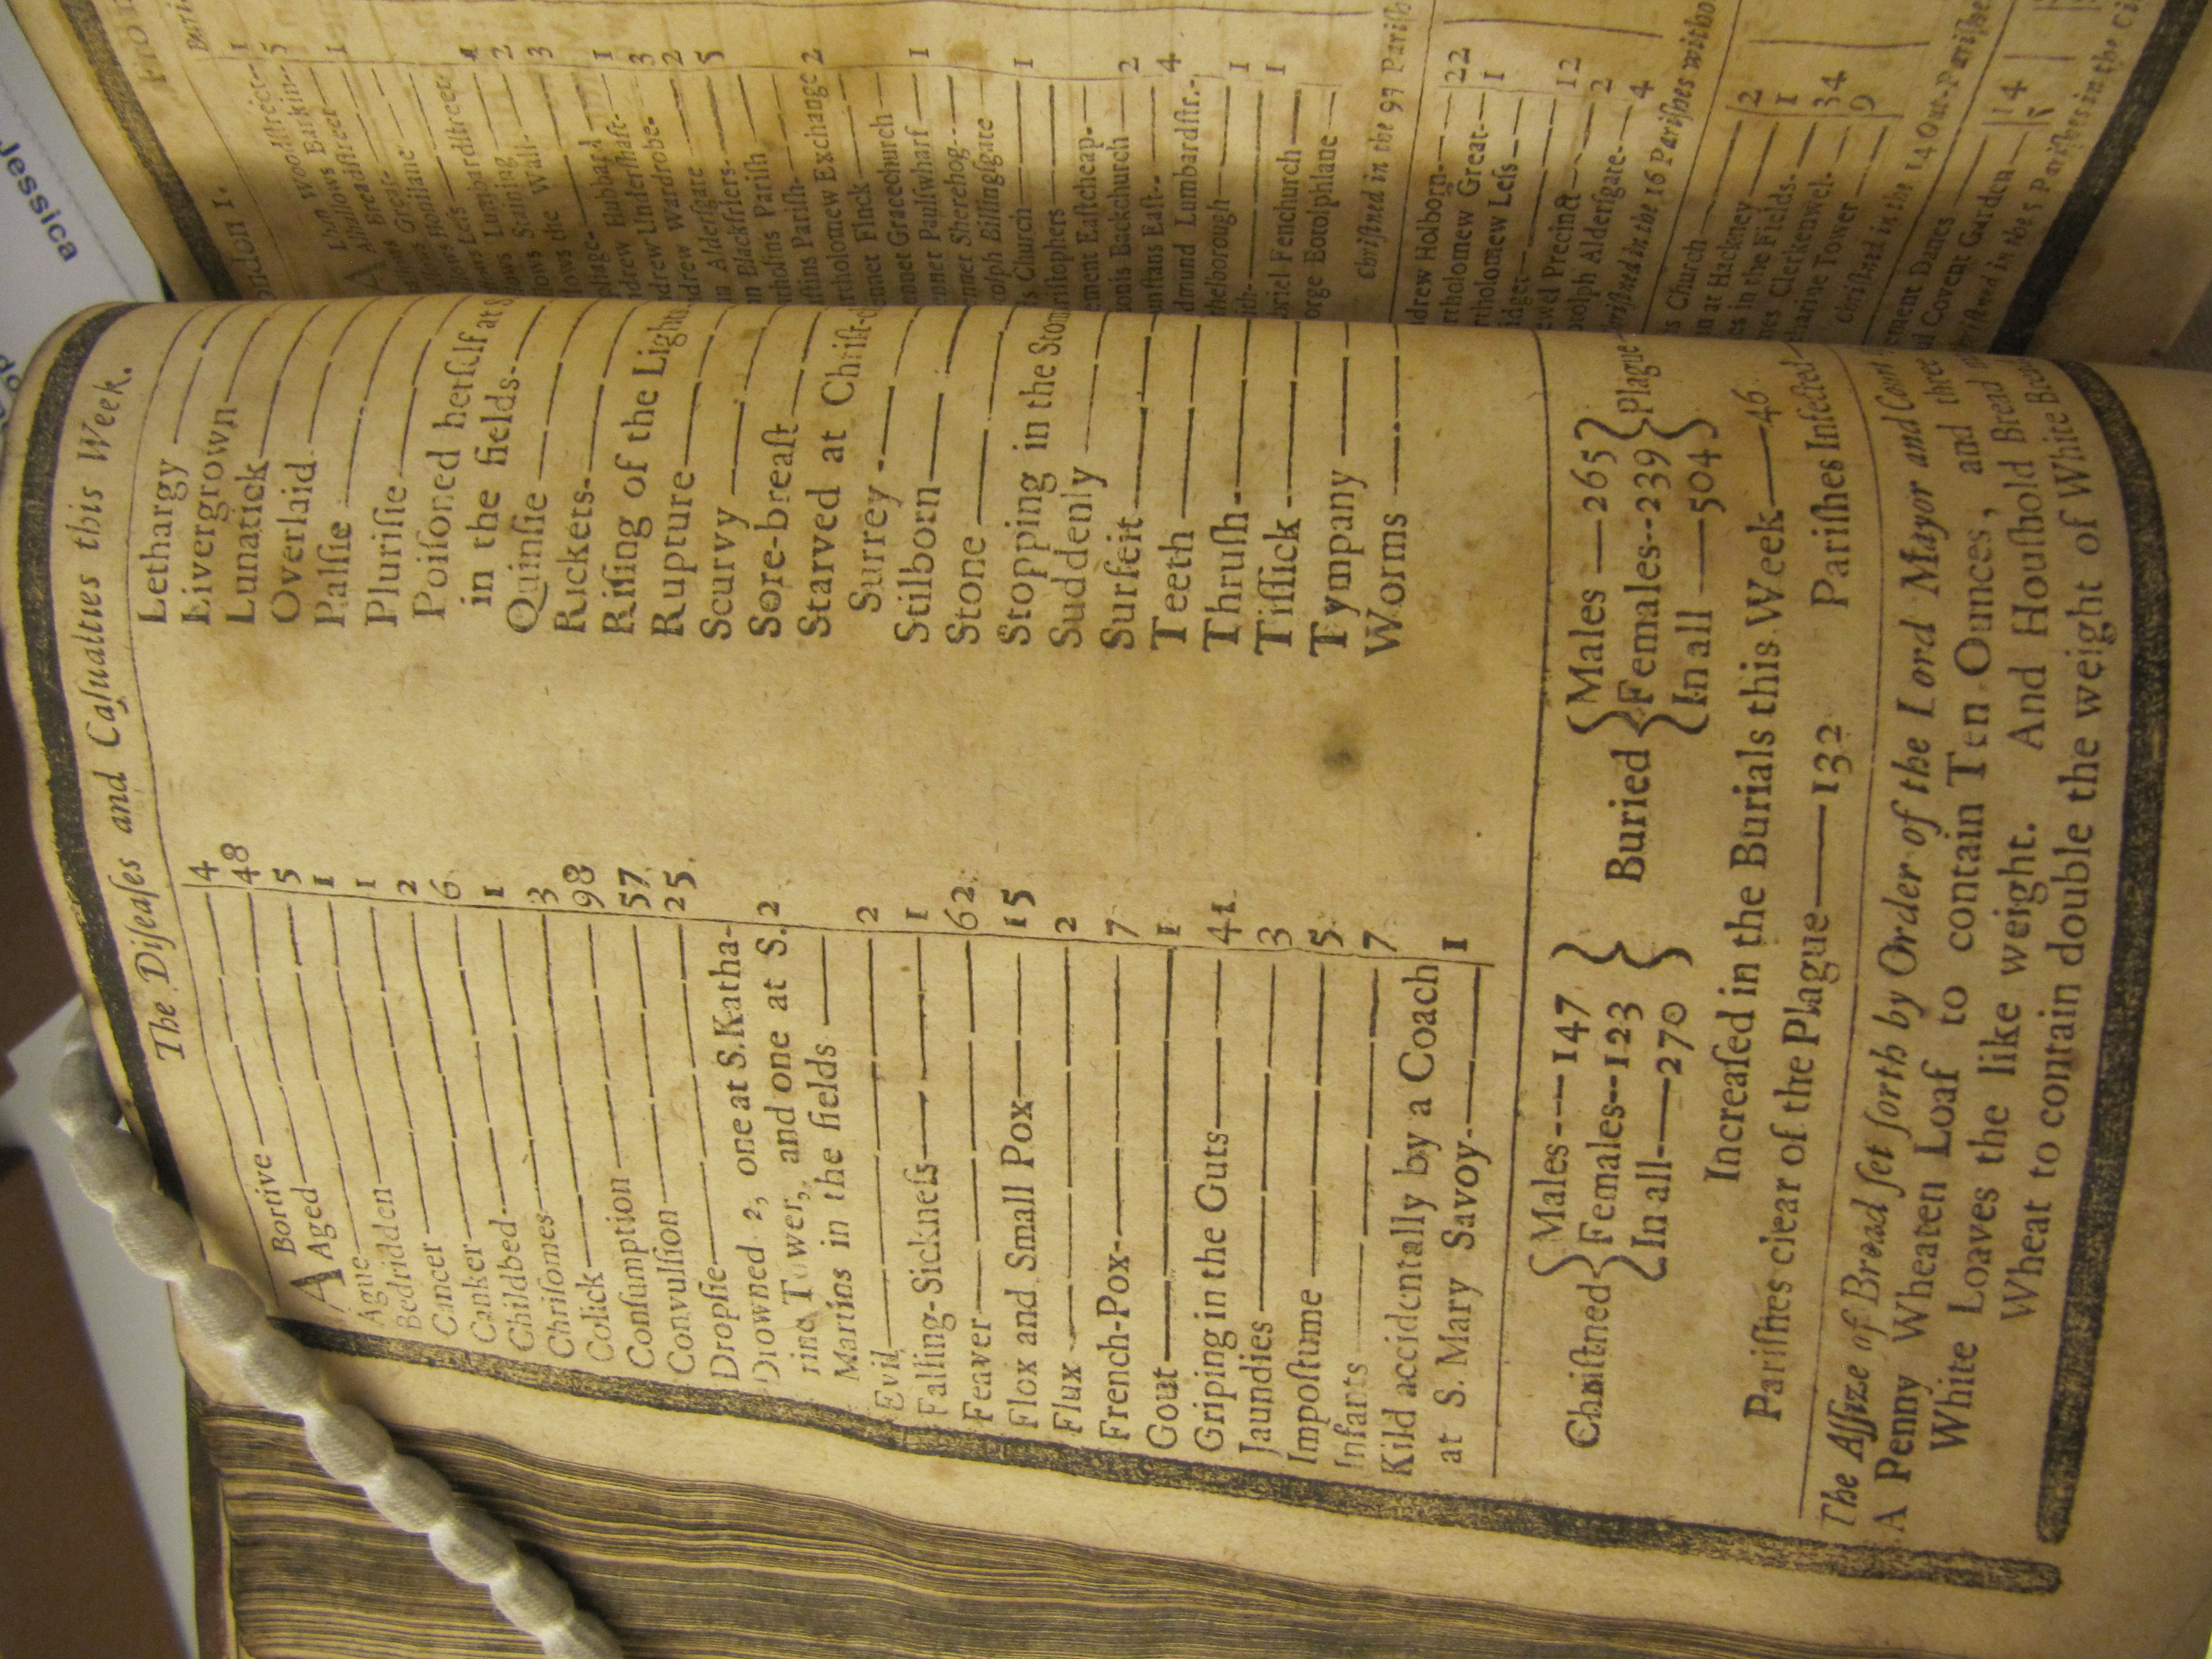 The Diſeaſes and Caſualties this Week.
ABortive 4
Aged 48
Ague 5
Bedridden 1
Cancer 1
Canker 2
Childbed 6
Chriſomes 1
Collick 3
Conſumption 98
Convulſion 57
Dropſie 25
Drowned 2, one at S.Katha-
rine Tower, and one at S. 2
Martins in the fields
Evil 2
Falling-Sickneſs 1
Feaver 62
Flox and Small Pox 15
Flux 2
French-Pox 7
Gout 1
Griping in the Guts 41
Jaundies 3
Impoſtume 5
Infants 7
Kild accidentally by a Coach
at S. Mary Savoy 1
Lethargy
Livergrown
Lunatick
Overlaid
Palſie
Pluriſie
Poiſoned herſelf at S
in the fields
Quinſie
Rickets
Riſing of the Light
Rupture
Scurvy
Sore-breaſt
Starved at Chriſt-
Surrey
Stilborn
Stone
Stopping in the Stom
Suddenly
Surfeit
Teeth
Thruſh
Tiſſick
Tympany
Worms
Chriſtned { Males 147 Females 123 In all 270 }
Buried { Males 265 Females 239 In all 504 } Plague
Increaſed in the Burials this Week 46
Pariſhes clear of the Plague 132 Pariſhes Infected
The Aſſize of Bread ſet forth by Order of the Lord Mayor and Court
A Penny Wheaten Loaf to contain Ten Ounces, and three
White Loaves the like weight. And Houſhold Bread
Wheat to contain double the weight of White Bread
ondon 1.
Woodſtreet 1
Barkin 5
Breadſtreet 1
Great
Honilane
Leſs
Lumbardſtreet 1
Staining 2
the Wall 3
Hubbard 1
ndrew Underſhaft 3
ndrew Wardrobe 2
Alderſgate 5
Blackfriers
Pariſh
ſtins Pariſh
artholomew Exchange 2
ennet Finck
ennet Gracechurch 1
ennet Paulſwharf
ennet Sherehog
otolph Billingſgate
s Church 1
hriſtophers
ement Eaſtcheap 2
onis Backchurch 4
unſtans Eaſt
dmund Lumbardſtr. 1
thelborough 1
ith
briel Fenchurch
orge Botolphlane
Chriſtned in the 97 Pariſh
drew Holborn 22
rtholomew Great 1
rtholomew Leſs
idget
ewel Precinct 12
otolph Alderſgate 2
4
hriſtned in the 16 Pariſhes witho
s Church
n at Hackney 2
es in the Fields 1
mes Clerkenwel 34
tharine Tower 9
Chriſtned in the 14 Out-Pariſhes
ement Danes
ul Covent Garden 14
riſtned in the 5 Pariſhes in the Ci
Jessica